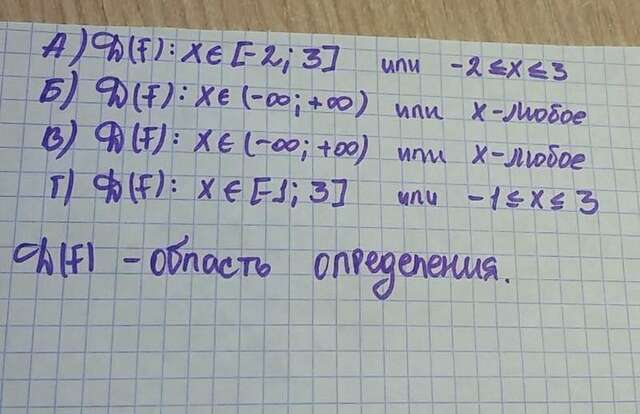 А) D(f): x∈[-2; 3] или -2≤x≤3
Б) D(f): x∈(-∞; +∞) или x-любое
В) D(f): x∈(-∞; +∞) или x-любое
Г) D(f): x∈[-1; 3] или -1≤x≤3
D(f) - область определения.